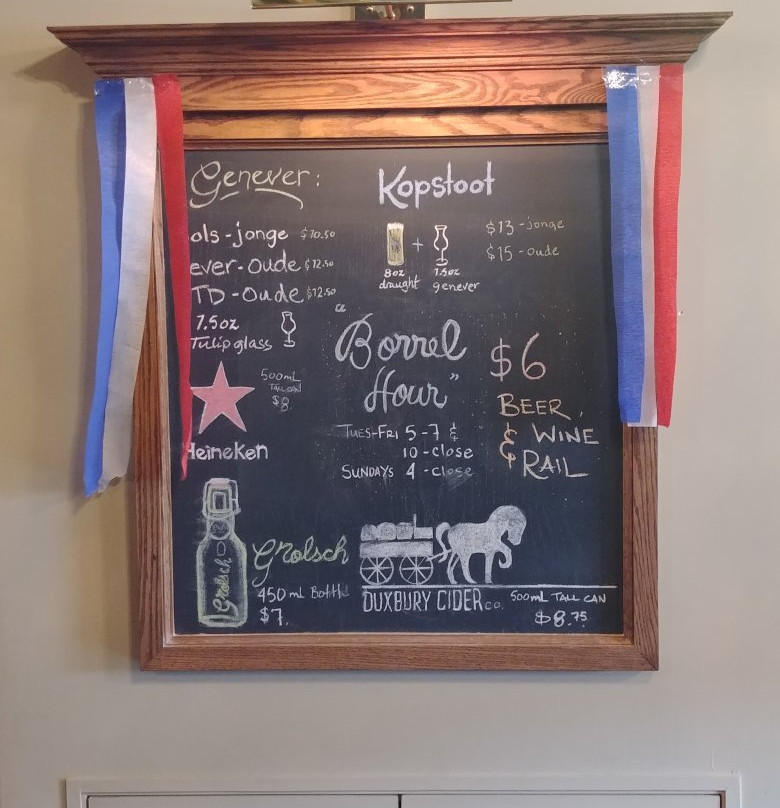 Genever:
ols-jonge $10.50
ever-Oude $12.50
TD-Oude $12.50
7.5oz
Tulip glass
Kopstoot
+
8oz draught
1.5oz genever
$13 - jonge
$15 - oude
"Borrel
Hour"
Tues-Fri 5-7 &
10-close
Sundays 4-close
$6
Beer,
& Wine
Rail
500mL
Tall can
$8
Heineken
Grolsch
Grolsch
450mL Bottle
$7.
Duxbury Cider co. 500mL Tall Can
$8.75